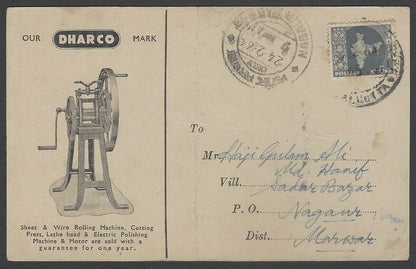 OUR DHARCO MARK
Sheet & Wire Rolling Machine, Cutting
Press, Lathe head & Electric Polishing
Machine & Motor are sold with a
guarantee for one year.
24.2.6
POSTAGE
To
Mr. Haji Gulam Ali
Md. Hanif
Vill. Sadar Bazar
P. O. Nagaur
Dist. Marwar